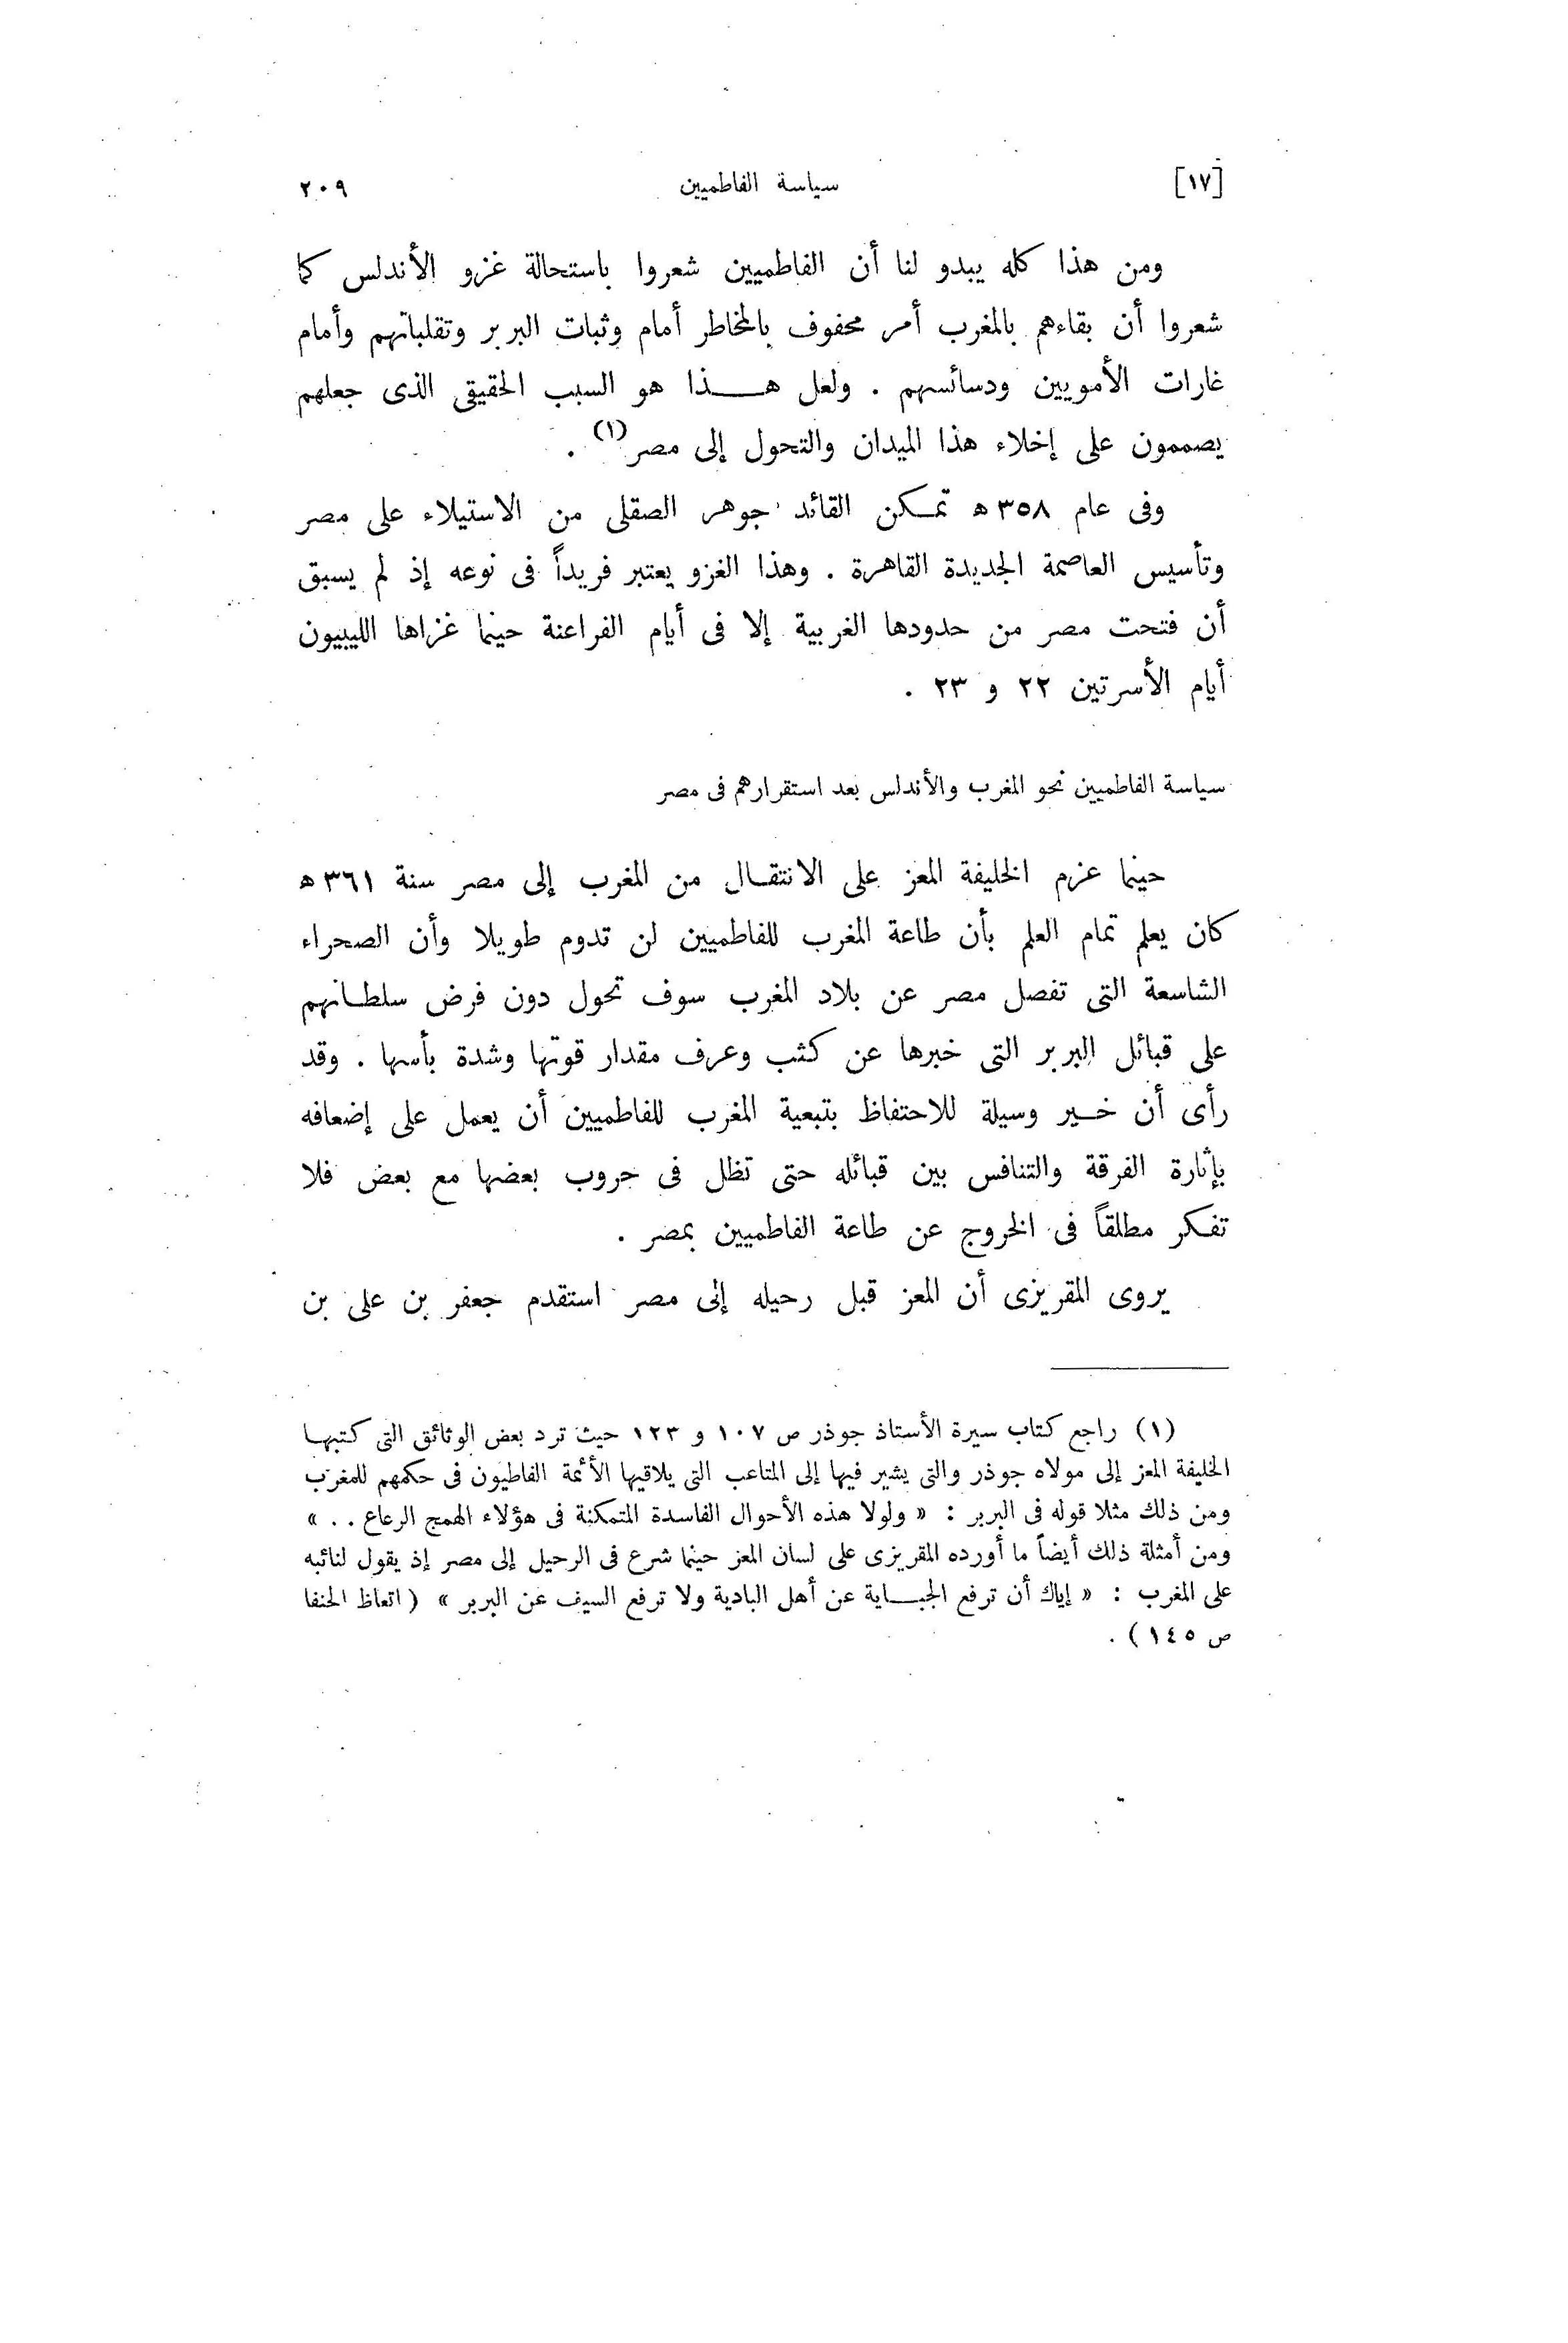 [١٧] سياسة الفاطميين ٢٠٩
ومن هذا كله يبدو لنا أن الفاطميين شعروا باستحالة غزو الأندلس كما
شعروا أن بقاءهم بالمغرب أمر محفوف بالمخاطر أمام وثبات البربر وتقلباتهم وأمام
غارات الأمويين ودسائسهم . ولعل هـذا هو السبب الحقيقى الذى جعلهم
يصممون على إخلاء هذا الميدان والتحول إلى مصر(١) .
وفى عام ٣٥٨ هـ تمكن القائد جوهر الصقلى من الاستيلاء على مصر
وتأسيس العاصمة الجديدة القاهرة . وهذا الغزو يعتبر فريداً فى نوعه إذ لم يسبق
أن فتحت مصر من حدودها الغربية إلا فى أيام الفراعنة حينما غزاها الليبيون
أيام الأسرتين ٢٢ و ٢٣ .
سياسة الفاطميين نحو المغرب والأندلس بعد استقرارهم فى مصر
حينما عزم الخليفة المعز على الانتقـال من المغرب إلى مصر سنة ٣٦١ هـ
كان يعلم تمام العلم بأن طاعة المغرب للفاطميين لن تدوم طويلا وأن الصحراء
الشاسعة التى تفصل مصر عن بلاد المغرب سوف تحول دون فرض سلطـانهم
على قبائل البربر التى خبرها عن كثب وعرف مقدار قوتها وشدة بأسها . وقد
رأى أن خـير وسيلة للاحتفاظ بتبعية المغرب للفاطميين أن يعمل على إضعافه
بإثارة الفرقة والتنافس بين قبائله حتى تظل فى حروب بعضها مع بعض فلا
تفكر مطلقاً فى الخروج عن طاعة الفاطميين بمصر .
يروى المقريزى أن المعز قبل رحيله إلى مصر استقدم جعفر بن على بن
(١) راجع كتاب سيرة الأستاذ جوذر ص ١٠٧ و ١٢٣ حيث ترد بعض الوثائق التى كتبهـا
الخليفة المعز إلى مولاه جوذر والتى يشير فيها إلى المتاعب التى يلاقيها الأئمة الفاطيون فى حكمهم للمغرب
ومن ذلك مثلا قوله فى البربر : « ولولا هذه الأحوال الفاسدة المتمكنة فى هؤلاء الهمج الرعاع . . »
ومن أمثلة ذلك أيضاً ما أورده المقريزى على لسان المعز حينما شرع فى الرحيل إلى مصر إذ يقول لنائبه
على المغرب : « إياك أن ترفع الجبـاية عن أهل البادية ولا ترفع السيف عن البربر » ( اتعاظ الحنفا
ص ١٤٥ ) .